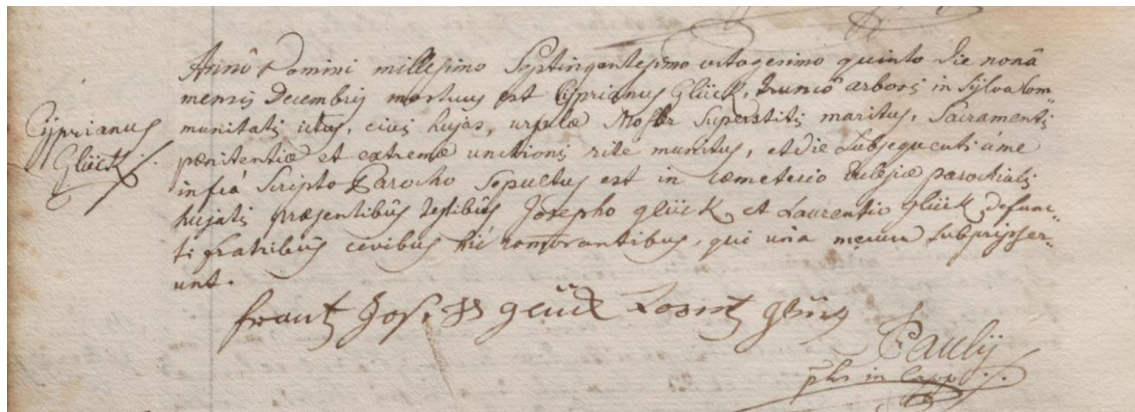 Annô Domini millesimo Septingentesimo octogesimo quinto die nonâ
mensis Decembris mortuus est Cyprianus Glück, trunco arboris in Sylva Com-
munitatis ictus, civis hujas, ursulæ Moser Superstitis maritus, Sacramentis
Cyprianus
Glück
pœnitentiæ et extremæ unctionis rite munitus, et die Subsequenti à me
infrá Scripto Parocho Sepultus est in cœmeterio Ecclesiæ parochialis
hujatis præsentibûs testibûs Josepho glück et Laurentio glück defunc-
ti fratribûs civibus hic commorantibus, qui unà mecum Subscripser-
unt.
frantz Joseph glück Lorentz glück
Pauly
in Capp